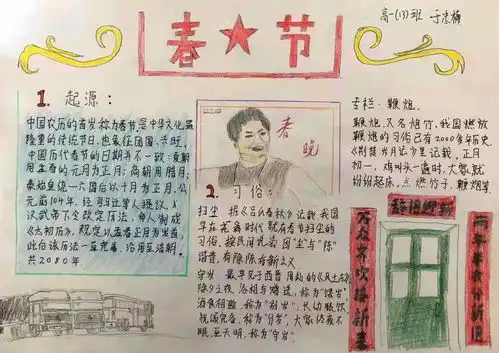 春★节
高一(13)班
1. 起源:
中国农历的首岁称为春节,是中华文化最
隆重的传统节日,也象征团圆、兴旺,
中国历代春节的日期并不一致:夏朝
用孟春的元月为正月;商朝用腊月,
秦始皇统一六国后以十月为正月,公
元前104年,经司马迁等人提议,汉
武帝下令改定历法,每人制成
《太初历》,规定以孟春正月为岁首,
此后该历法一直兖备,沿用至清朝,
共2080年
春
晚
2. 习俗:
扫尘 据《吕氏春秋》记载,我国
早在尧舜时代就有春节扫尘的
习俗,按民间说法:因"尘"与"陈"
谐音,有除陈布新之义
守岁 最早见于西晋周处的《风土志》
除夕之夜,各相与赠送,称为"馈岁"
酒食相邀,称为"别岁",长幼聚饮,
祝颂完备,称为"分岁",大家终夜不
眠,至天明,称为"守岁"
鞭炮,
鞭炮,又名爆竹,我国燃放
鞭炮的习俗已有2000多年历史,
《荆楚岁月记》里记载,正月
初一,鸡叫头一遍时,大家就
纷纷起床,点燃竹子、鞭炮等
辞旧迎新
万众齐欢接新春